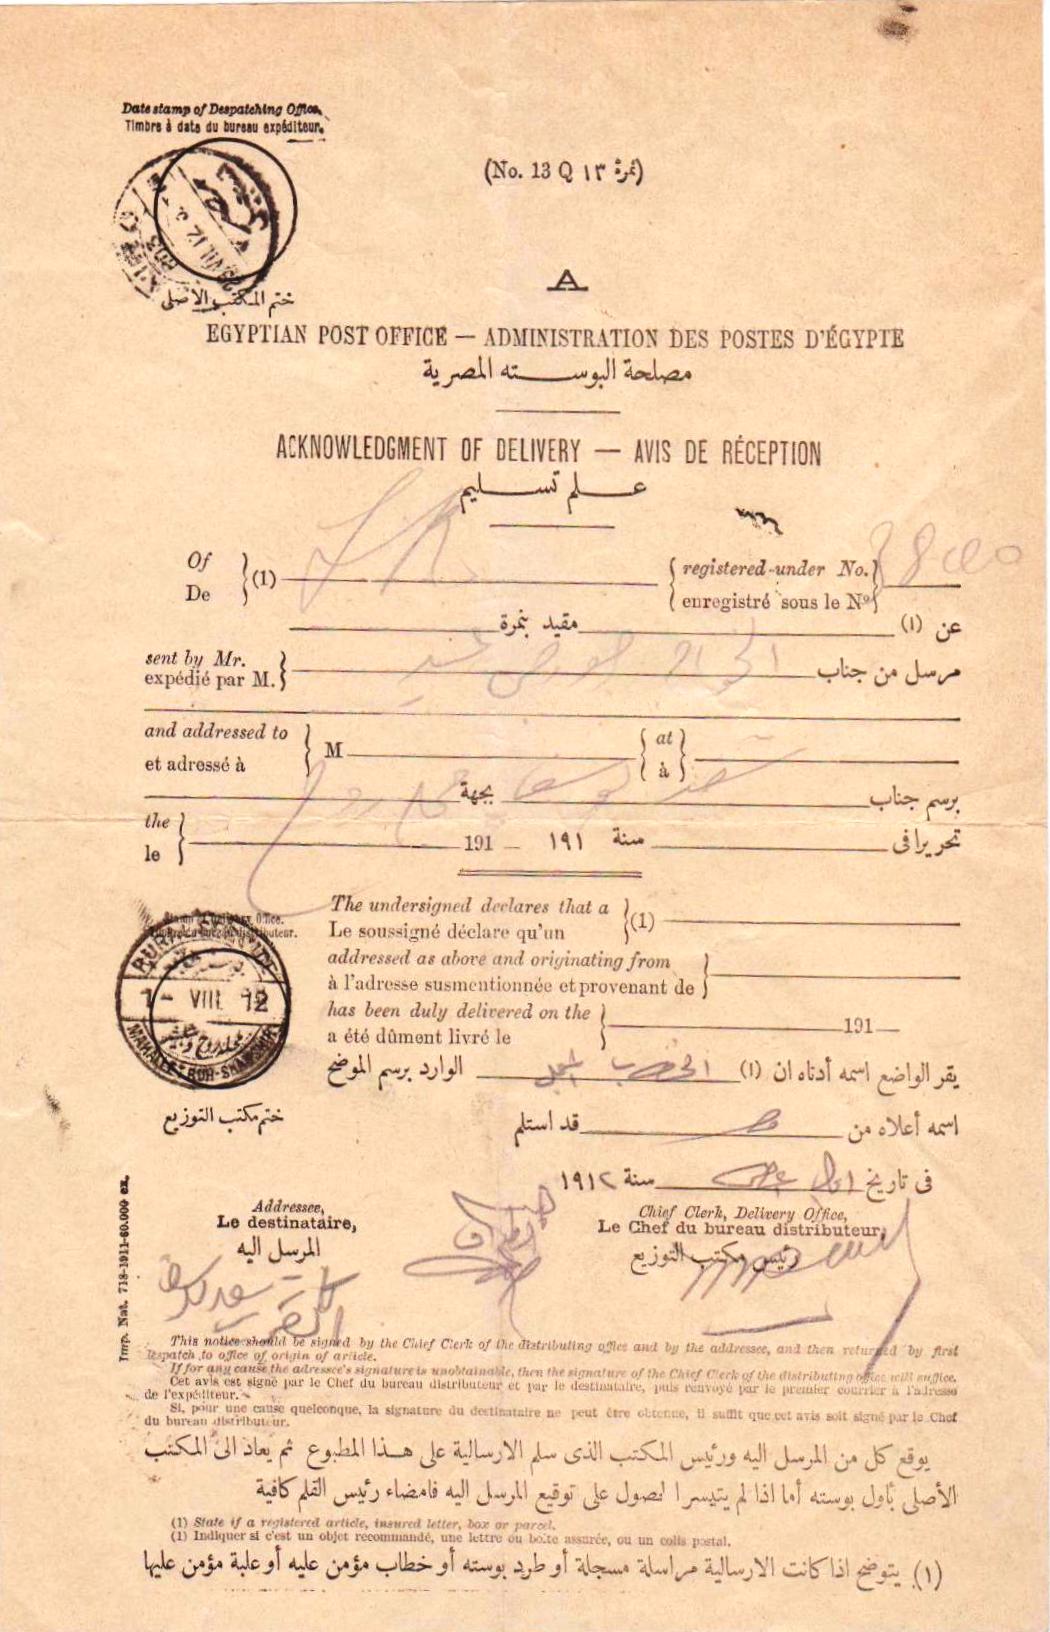 Date stamp of Despatching Office,
Timbre à date du bureau expéditeur.
(No. 13 Q نمرة ١٣)
ختم المكتب الاصلى
A
EGYPTIAN POST OFFICE — ADMINISTRATION DES POSTES D'ÉGYPTE
مصلحة البوسته المصرية
ACKNOWLEDGMENT OF DELIVERY — AVIS DE RÉCEPTION
علم تسليم
Of
De
(1)
registered under No.
enregistré sous le No
عن (١) مقيد بنمرة
sent by Mr.
expédié par M.
مرسل من جناب
and addressed to
et adressé à
M
at
à
برسم جناب بجهة
the
le
191 — تحريرا فى سنة ١٩١
Stamp of Delivery Office.
1 - VIII 12
MAHALLET ROH-SHAMSHIR
ختم مكتب التوزيع
The undersigned declares that a
Le soussigné déclare qu'un
(1)
addressed as above and originating from
à l'adresse susmentionnée et provenant de
has been duly delivered on the
a été dûment livré le
191 —
يقر الواضع اسمه أدناه ان (١) الوارد برسم الموضح
اسمه أعلاه من قد استلم
فى تاريخ سنة ١٩١٢
Addressee,
Le destinataire,
المرسل اليه
Chief Clerk, Delivery Office,
Le Chef du bureau distributeur,
رئيس مكتب التوزيع
Imp. Nat. 718-1911-60.000 ex.
This notice should be signed by the Chief Clerk of the distributing office and by the addressee, and then returned by first
despatch to office of origin of article.
If for any cause the adressee's signature is unobtainable, then the signature of the Chief Clerk of the distributing office will suffice.
Cet avis est signé par le Chef du bureau distributeur et par le destinataire, puis renvoyé par le premier courrier à l'adresse
de l'expéditeur.
Si, pour une cause quelconque, la signature du destinataire ne peut être obtenue, il suffit que cet avis soit signé par le Chef
du bureau distributeur.
يوقع كل من المرسل اليه ورئيس المكتب الذى سلم الارسالية على هذا المطبوع ثم يعاد الى المكتب
الأصلى بأول بوسته أما اذا لم يتيسر الحصول على توقيع المرسل اليه فامضاء رئيس القلم كافية
(1) State if a registered article, insured letter, box or parcel.
(1) Indiquer si c'est un objet recommandé, une lettre ou boîte assurée, ou un colis postal.
(١) يتوضح اذا كانت الارسالية مراسلة مسجلة أو طرد بوسته أو خطاب مؤمن عليه أو علبة مؤمن عليها